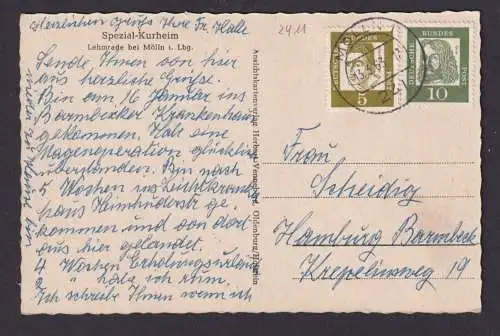 Herzlichen Gruß Ihre Fr. Halle
Spezial-Kurheim
Lehmrade bei Mölln i. Lbg.
Sende Ihnen von hier
aus herzliche Grüße.
Bin am 16 Januar ins
Barmbecker Krankenhaus
gekommen. Hab eine
Magenoperation glücklich
überstanden. Bin nach
5 Wochen ins
haus ge.
kommen und von dort
aus hier gelandet.
4 Wochen Erholungsurlaub
2 " habe ich rum.
Ich schreibe Ihnen wenn ich
wieder zu Hause bin
Ansichtskartenverlag Herbert Oldenburg/Holstein
2411
DEUTSCHE BUNDESPOST
5
DEUTSCHE BUNDESPOST
10
Frau
Scheidig
Hamburg Barmbeck
Krepelinsweg 19